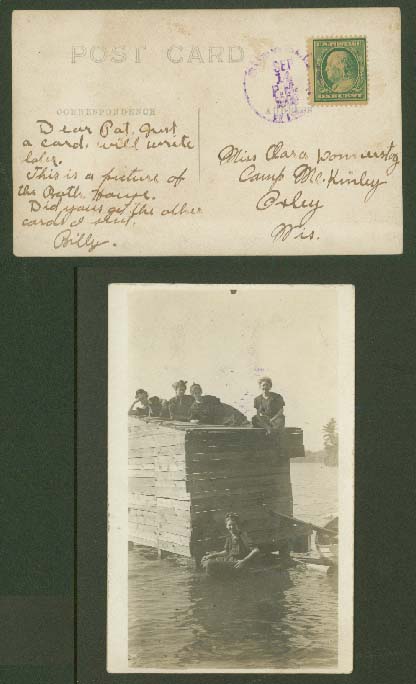 POST CARD
CORRESPONDENCE
Dear Pat, Just
a card, will write
later.
This is a picture of
the Bath House.
Did you get the other
cards I sent.
Billy.
U.S. POSTAGE
Miss Clara
Camp McKinley
Oxley
Wis.